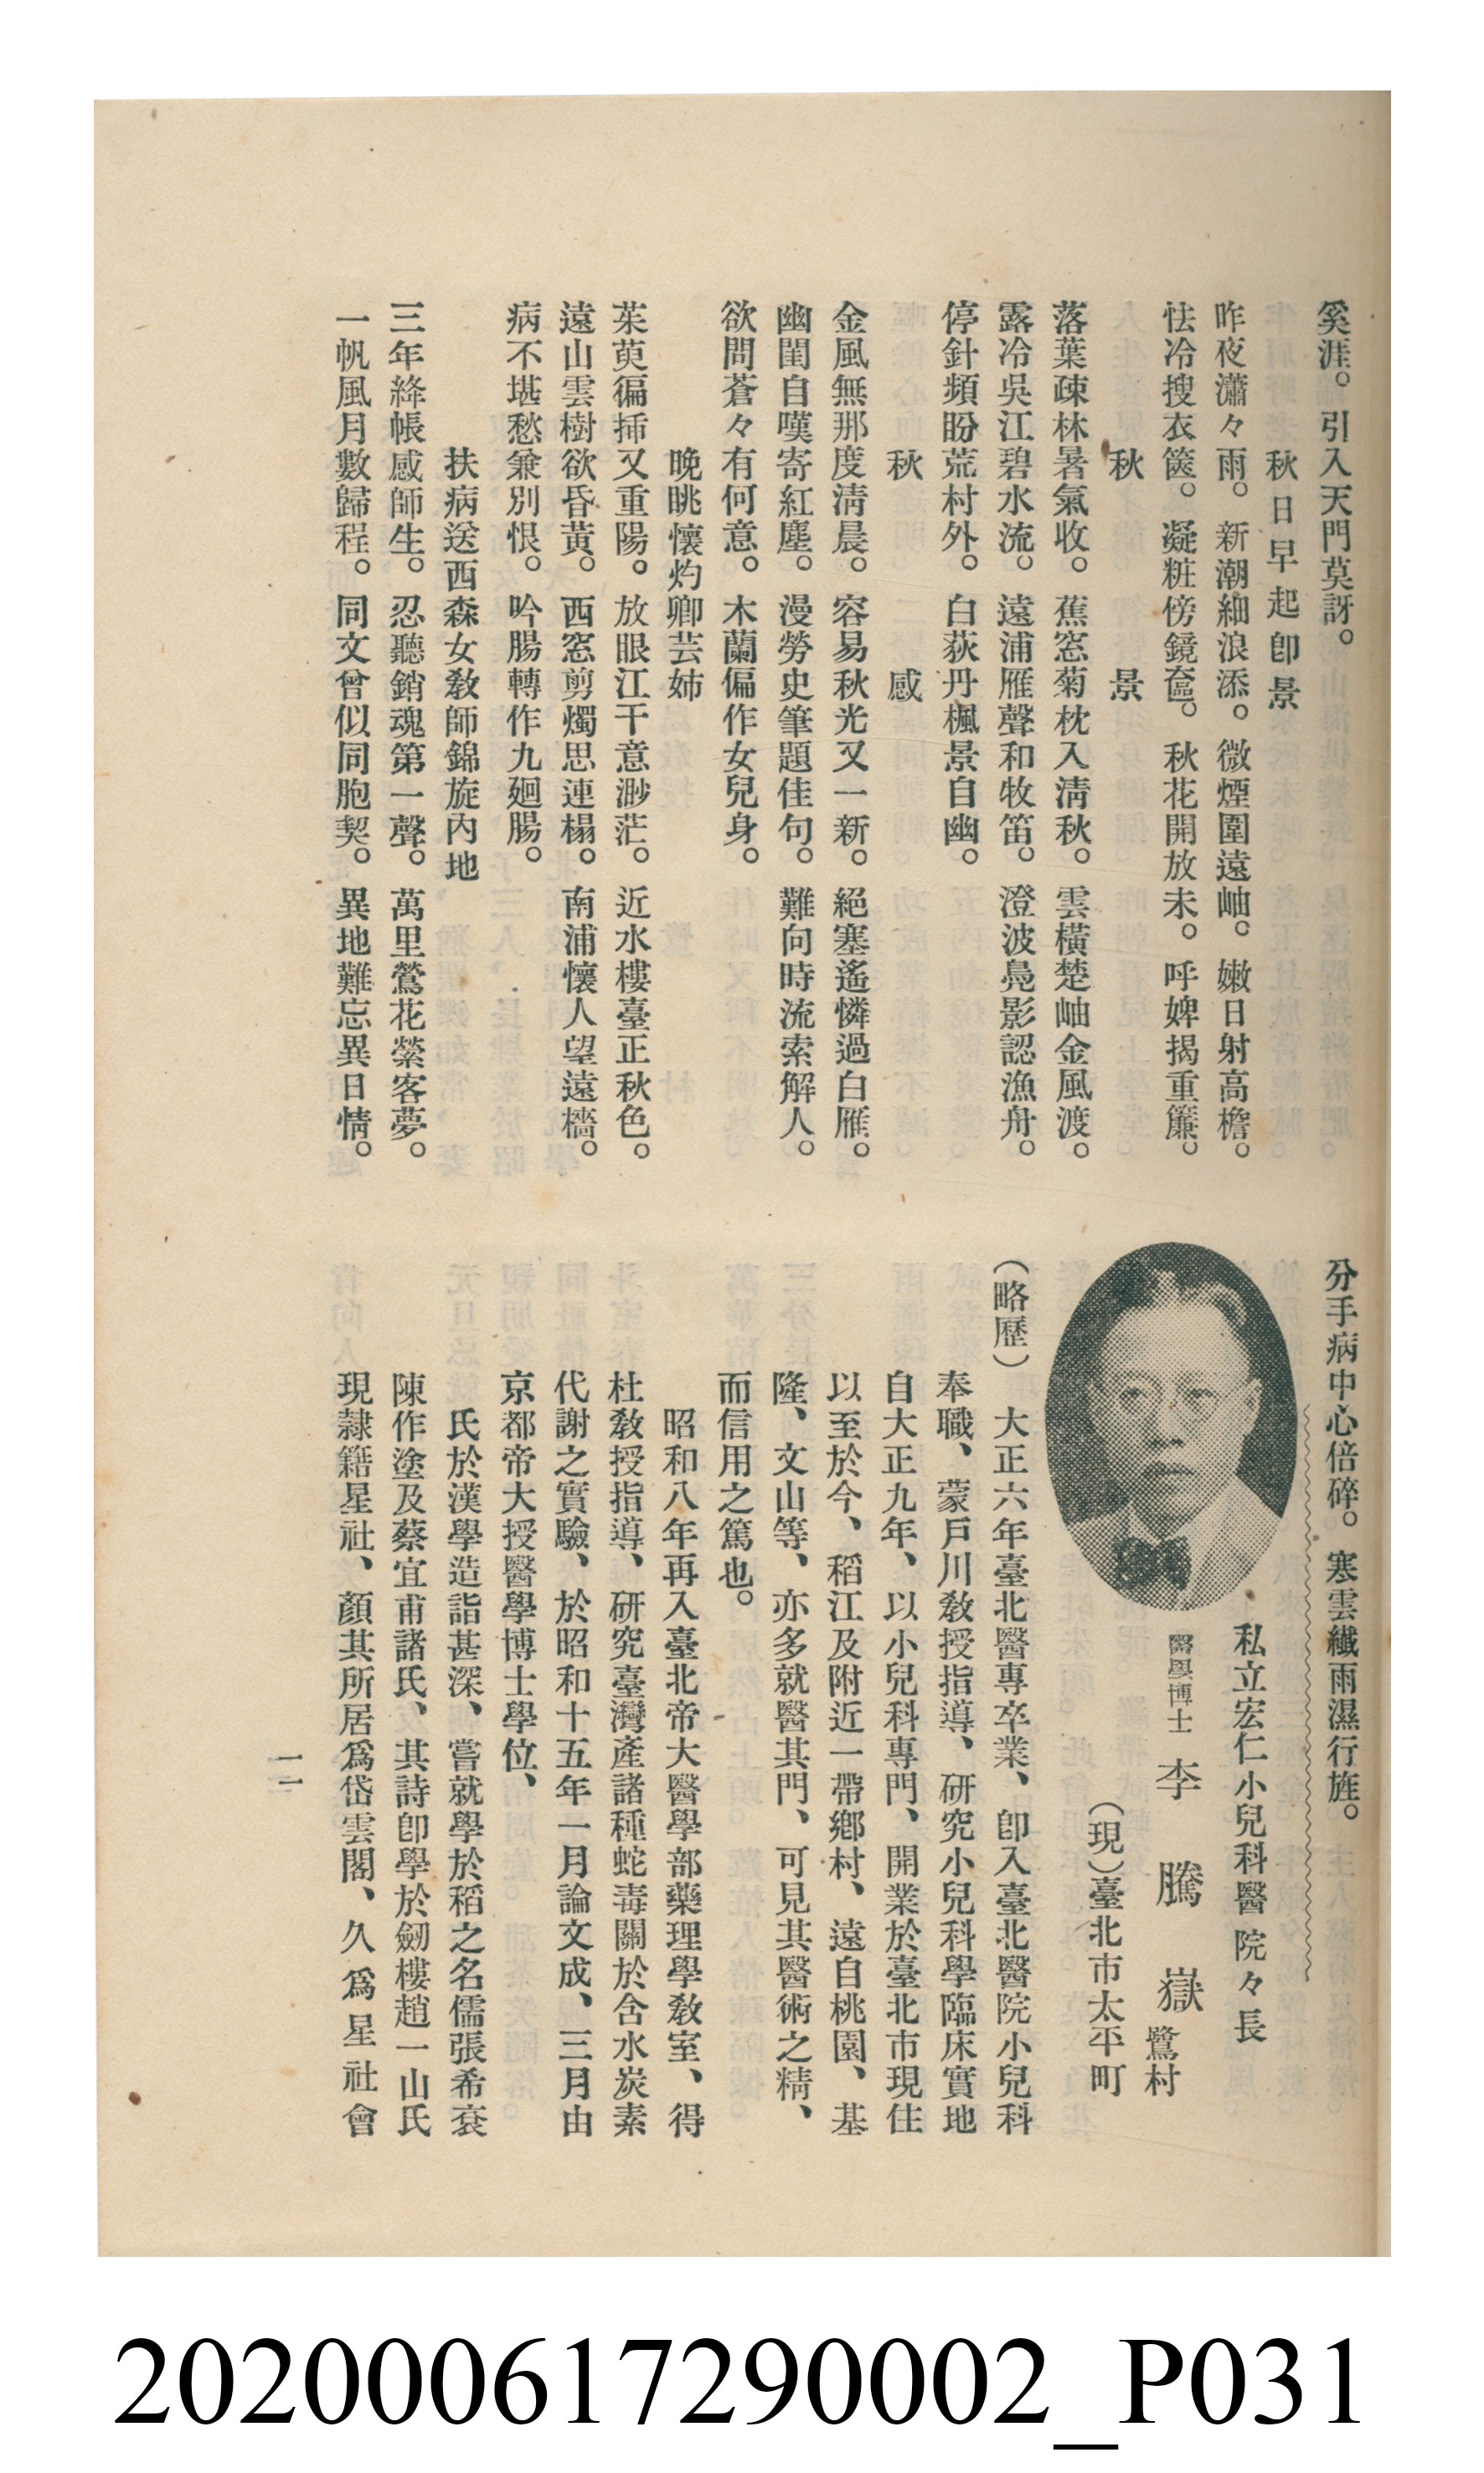 奚涯。引入天門莫訝。
秋日早起卽景
昨夜瀟々雨。新潮細浪添。微煙圍遠岫。嫩日射高檐。
怯冷搜衣篋。凝粧傍鏡奩。秋花開放未。呼婢揭重簾。
秋景
落葉疎林暑氣收。蕉窓菊枕入淸秋。雲橫楚岫金風渡。
露冷吳江碧水流。遠浦雁聲和牧笛。澄波鳧影認漁舟。
停針頻盼荒村外。白荻丹楓景自幽。
秋感
金風無那度淸晨。容易秋光又一新。絕塞遙憐過白雁。
幽閨自嘆寄紅塵。漫勞史筆題佳句。難向時流索解人。
欲問蒼々有何意。木蘭偏作女兒身。
晚眺懷灼卿芸姊
茱萸徧揷又重陽。放眼江干意渺茫。近水樓臺正秋色。
遠山雲樹欲昏黃。西窓剪燭思連榻。南浦懷人望遠檣。
病不堪愁兼別恨。吟腸轉作九廻腸。
扶病送西森女敎師錦旋內地
三年絳帳感師生。忍聽銷魂第一聲。萬里鶯花縈客夢。
一帆風月數歸程。同文曾似同胞契。異地難忘異日情。
分手病中心倍碎。寒雲纖雨濕行旌。
私立宏仁小兒科醫院々長
醫學博士 李騰嶽 鷺村
（現）臺北市太平町
（略歷）大正六年臺北醫專卒業、卽入臺北醫院小兒科
奉職、蒙戶川敎授指導、硏究小兒科學臨床實地
自大正九年、以小兒科專門、開業於臺北市現住
以至於今、稻江及附近一帶鄕村、遠自桃園、基
隆、文山等、亦多就醫其門、可見其醫術之精、
而信用之篤也。
昭和八年再入臺北帝大醫學部藥理學敎室、得
杜敎授指導、硏究臺灣產諸種蛇毒關於含水炭素
代謝之實驗、於昭和十五年一月論文成、三月由
京都帝大授醫學博士學位、
氏於漢學造詣甚深、嘗就學於稻之名儒張希袞
陳作塗及蔡宜甫諸氏、其詩卽學於劒樓趙一山氏
現隷籍星社、顏其所居爲岱雲閣、久爲星社會
一一
202000617290002_P031